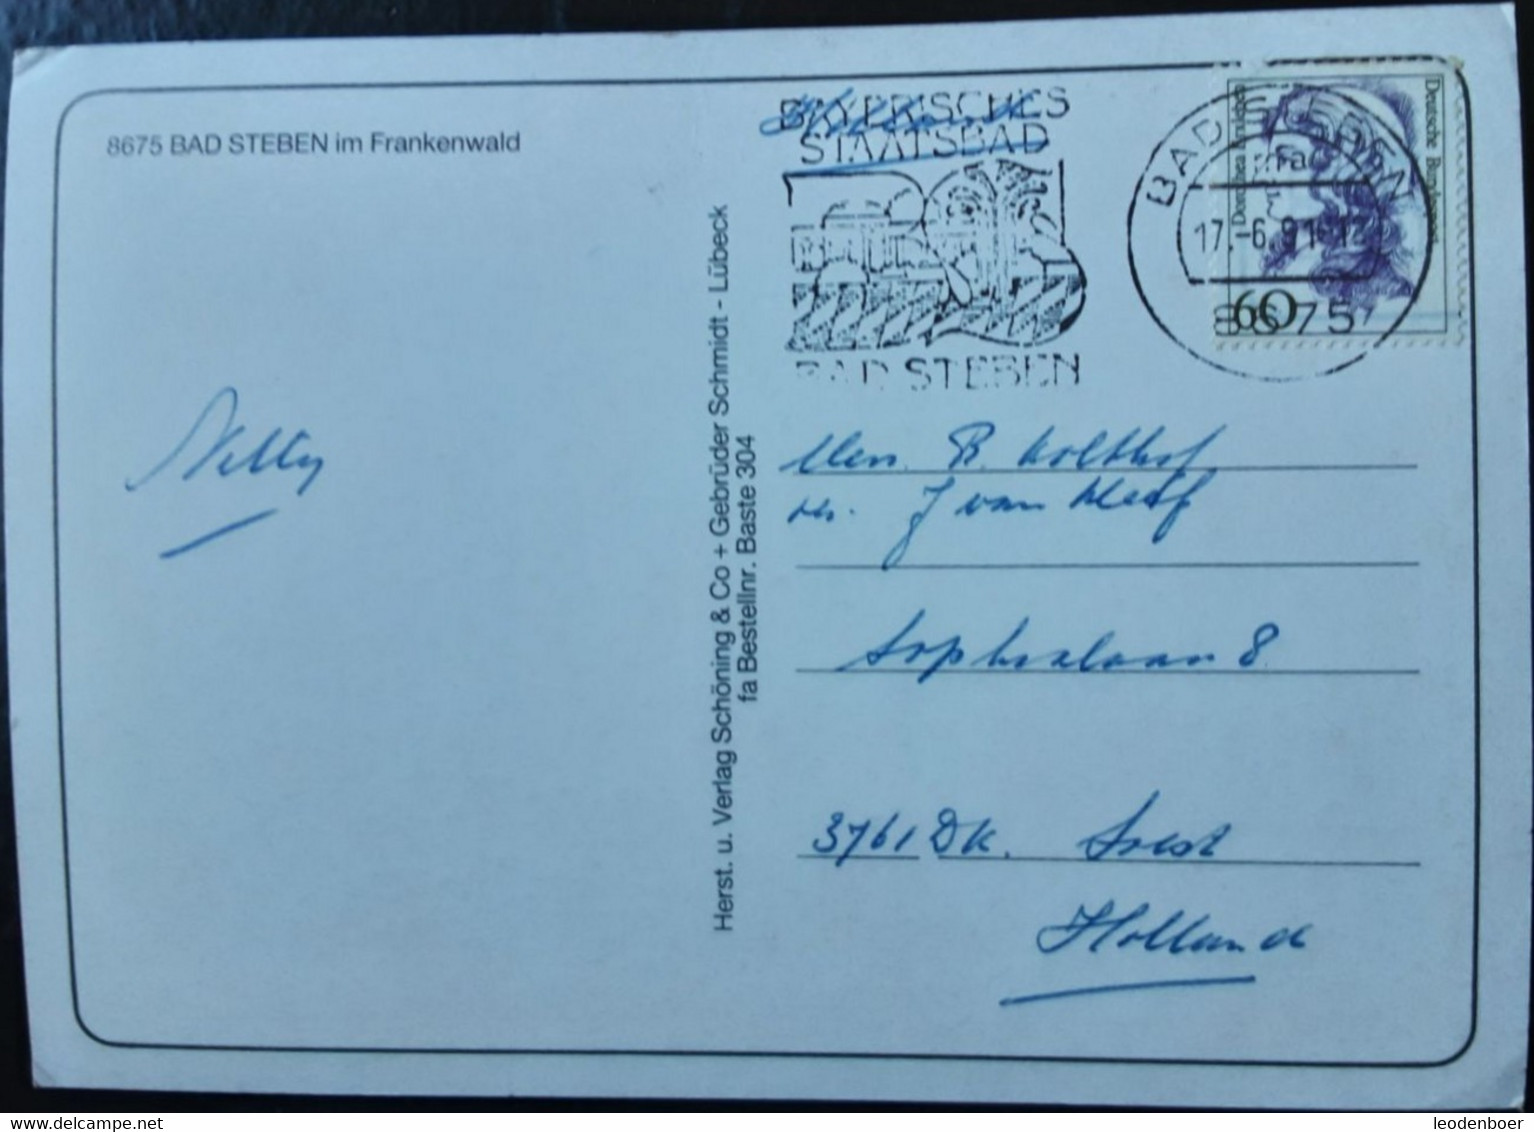 8675 BAD STEBEN im Frankenwald
Nelly
Herst. u. Verlag Schöning & Co + Gebrüder Schmidt - Lübeck
fa Bestellnr. Baste 304
Holland
BAYERISCHES
STAATSBAD
BAD STEBEN
BAD STEBEN
17.-6.91-12
8675
Deutsche Bundespost
Dorothea Erxleben
60
B. Holthof
J van
Sophialaan 8
3761 DK. Soest
Holland
leodenboer